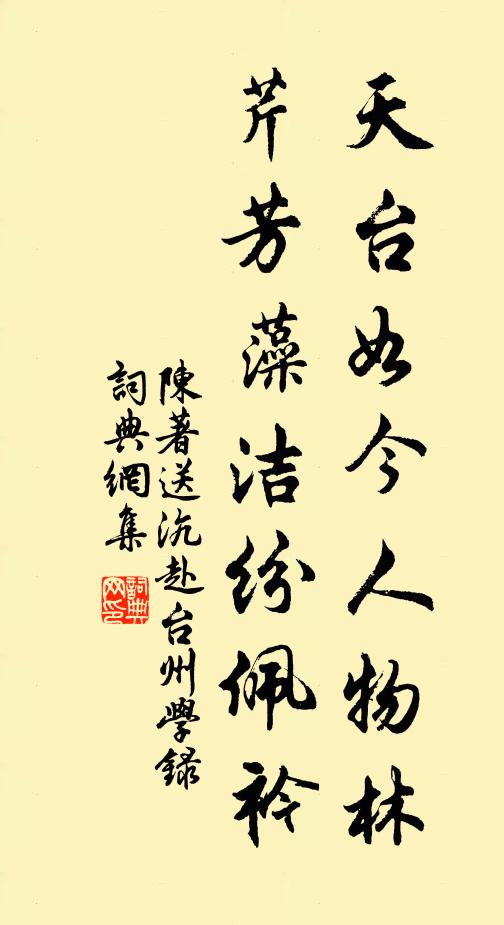 天台如今人物林
芹芳藻洁紛佩衿
陳著送沉赴台州學録
詞典網集
詞典網印